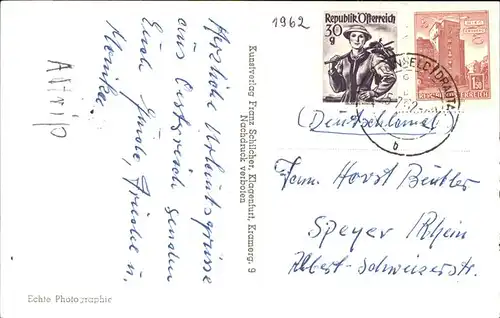 1962
Republik Österreich
30 g
1.50
(Deutschland)
Fam. Horst Beutler
Speyer Rhein
Albert-Schweizerstr.
Herzliche Urlaubsgrüsse
aus Österreich senden
Euch Günter, Friedel u.
Monika.
Kunstverlag Franz Schilcher, Klagenfurt, Kramerg. 9
Nachdruck verboten
Echte Photographie